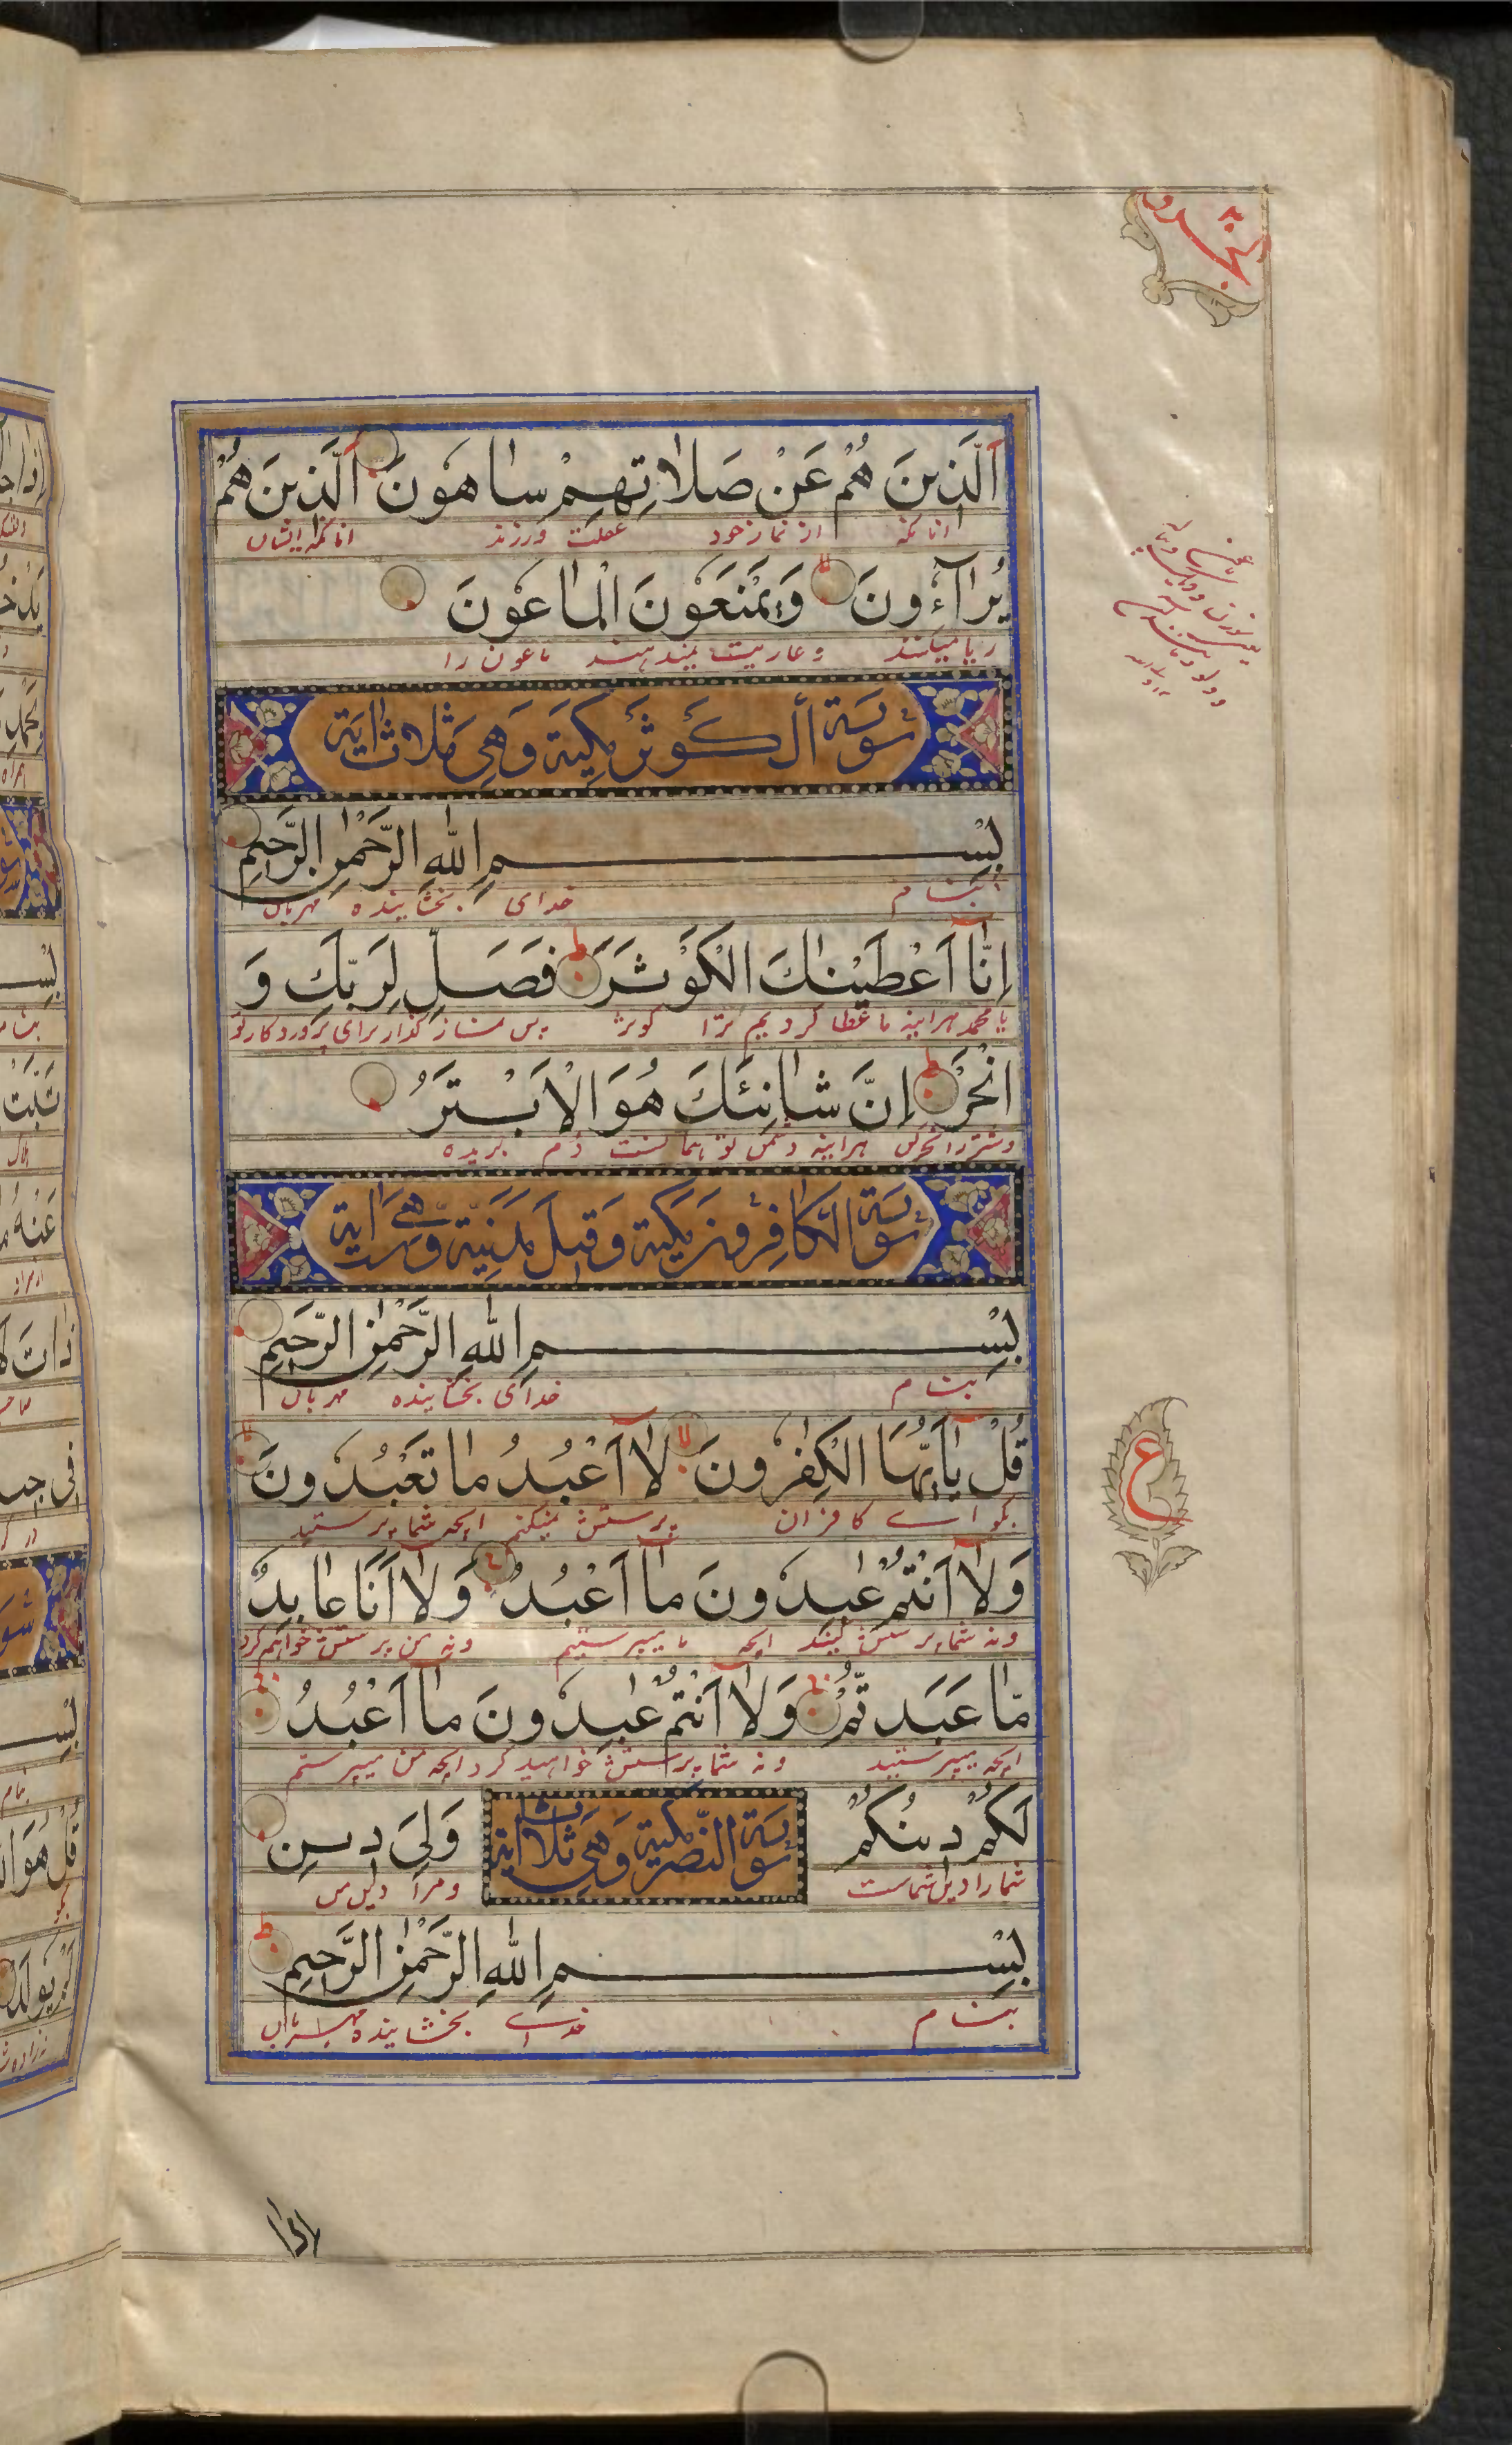 اَلَّذينَ هُمْ عَنْ صَلاتِهِمْ ساهُونَ اَلَّذينَ هُمْ
انانکه از نماز خود غفلت ورزند انانکه ایشان
يُرٰآؤُنَ وَيَمْنَعُونَ الْماعُونَ
ریا میکنند و عاریت نمیدهند ماعون را
سُورَة اَلكَوثَر مَكِّيَة وَهِيَ ثَلاث اٰيَة
بِسْمِ اللهِ الرَّحْمٰنِ الرَّحيمِ
بنام خدای بخشاینده مهربان
اِنّٰا اَعْطَيْناكَ الْكَوْثَرَ فَصَلِّ لِرَبِّكَ وَ
یا محمد هراینه ما عطا کردیم ترا کوثر پس نماز گذار برای پروردکار تو
انْحَرْ اِنَّ شانِئَكَ هُوَ الْاَبْتَرُ
و شتر را نحر کن هراینه دشمن تو همانست دم بریده
سُورَة الكافِرُون مَكِّيَة وَقيلَ مَدَنِيَّة وَهِيَ اٰيَة
بِسْمِ اللهِ الرَّحْمٰنِ الرَّحيمِ
بنام خدای بخشاینده مهربان
قُلْ يٰا اَيُّهَا الْكٰفِرُونَ لٰا اَعْبُدُ ما تَعْبُدُونَ
بگو ای کافران پرستش نمیکنم انچه شما پرستید
وَلٰا اَنْتُمْ عٰبِدُونَ مٰا اَعْبُدُ وَلٰا اَنَا عابِدٌ
و نه شما پرستش کنید انچه ما میپرستیم و نه من پرستش خواهم کرد
مّا عَبَدتُّمْ وَلٰا اَنْتُمْ عٰبِدُونَ مٰا اَعْبُدُ
انچه میپرستید و نه شما پرستش خواهید کرد انچه من میپرستم
لَكُمْ دينُكُمْ وَلِيَ دينِ
سُورَة النَّصر مَكِّيَة وَهِيَ ثَلاث اٰيَة
شما را دین شماست و مرا دین من
بِسْمِ اللهِ الرَّحْمٰنِ الرَّحيمِ
بنام خدای بخشاینده مهربان
ع
اذا